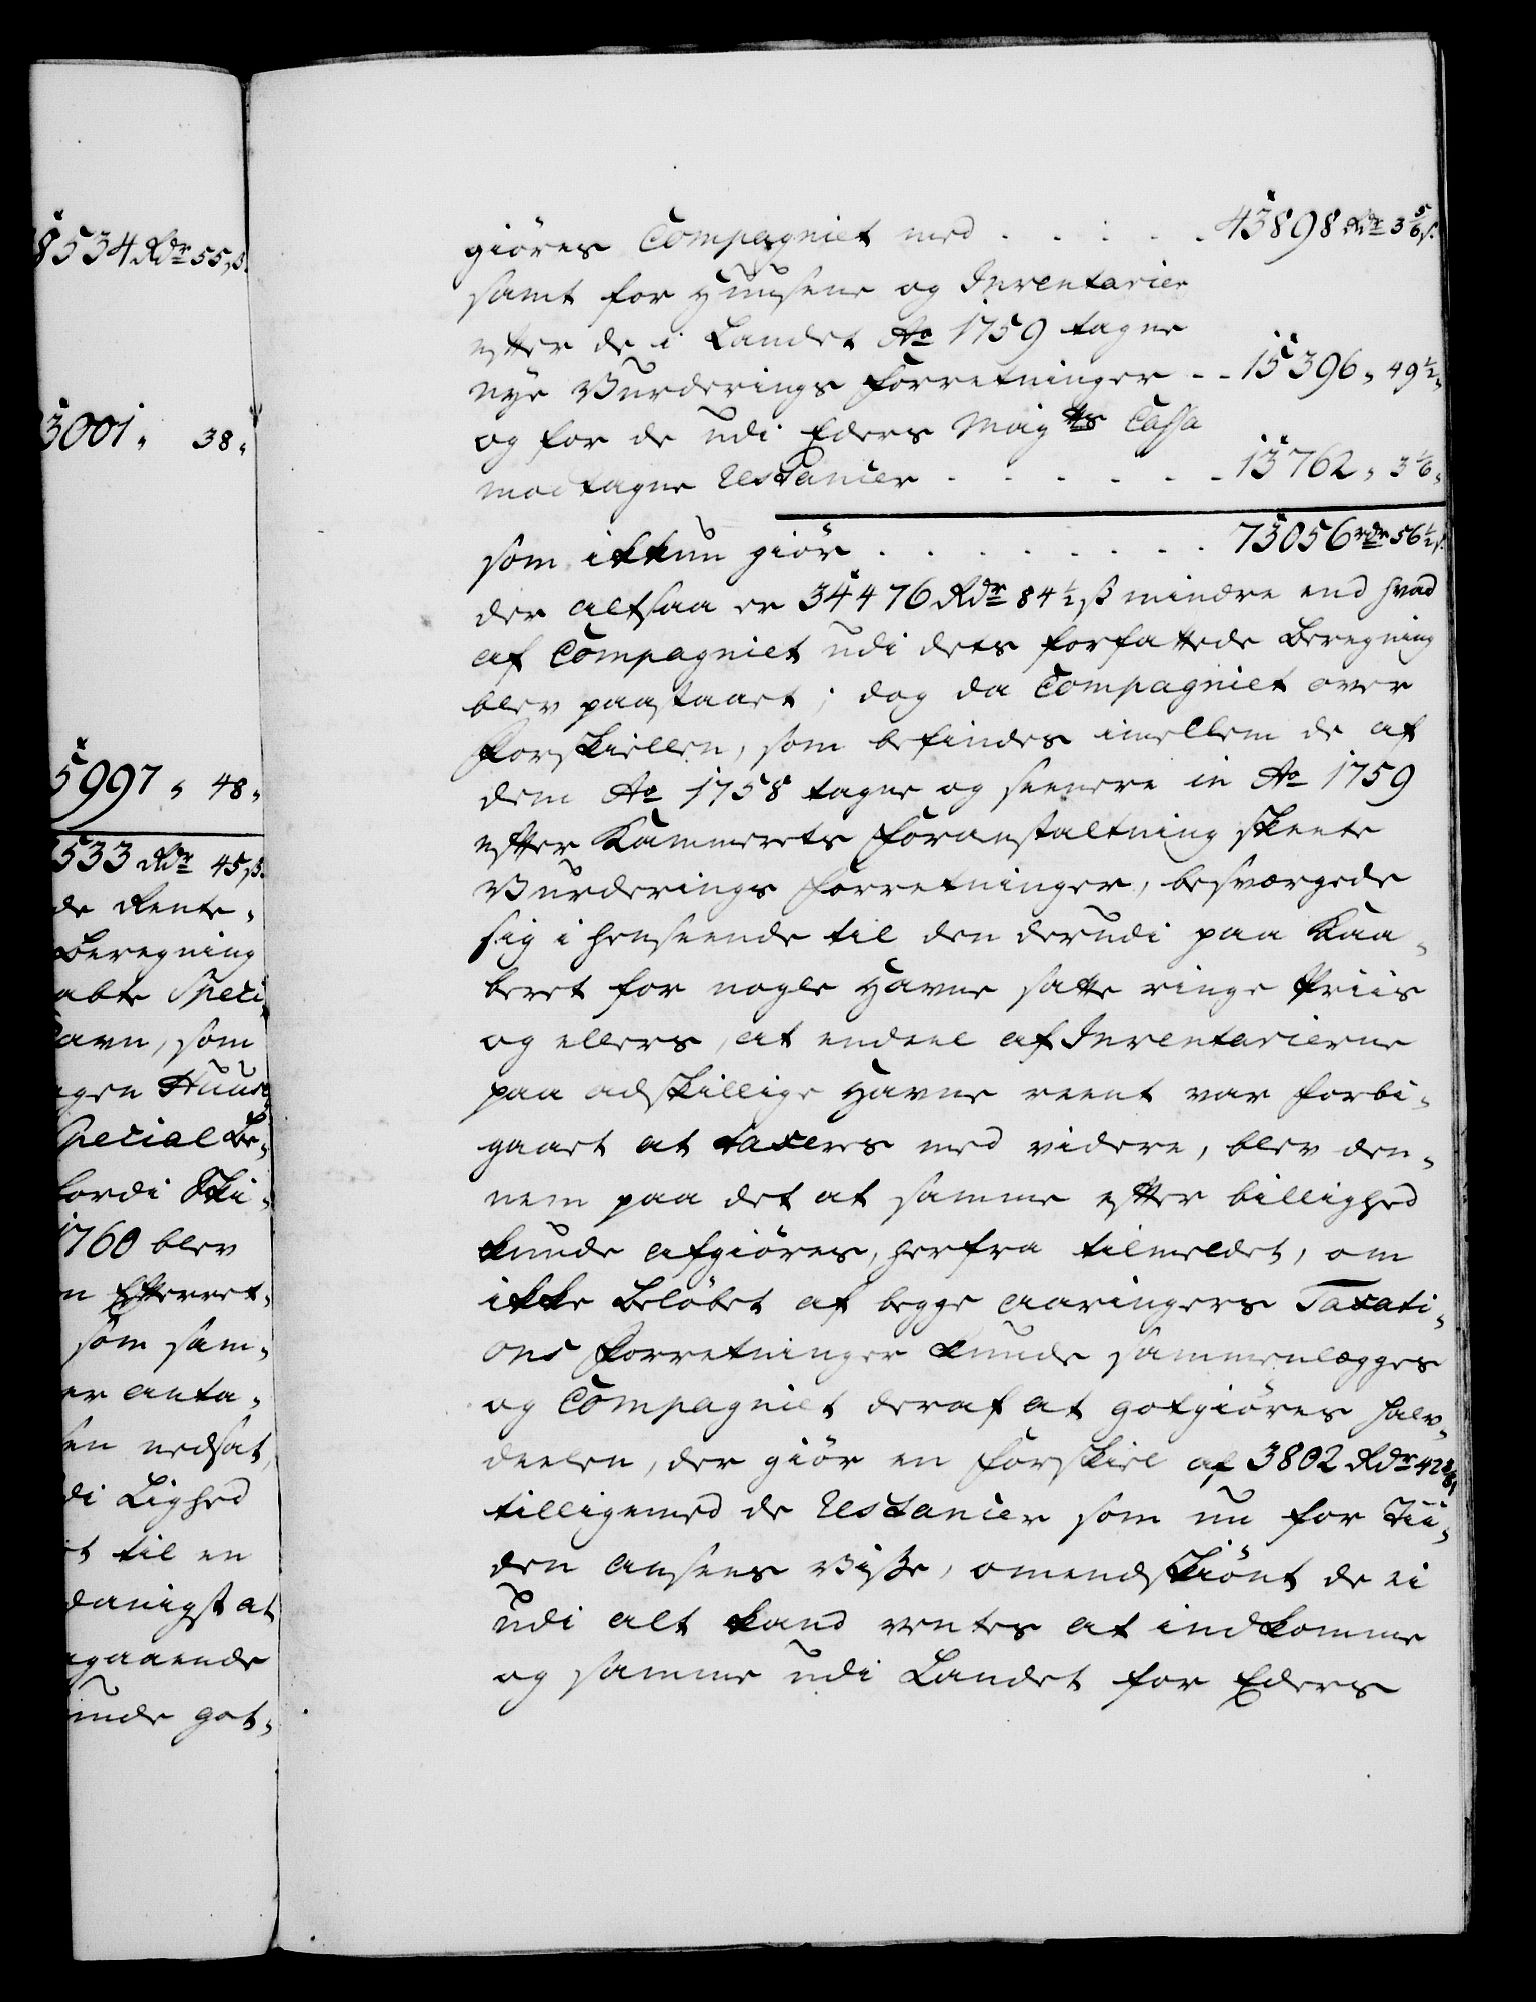 8534 Rdr 55 ß.
3001 „ 38 „
5997 „ 48 „
533 Rdr 45 ß.
de Rente-
Beregning
abte Speci-
avn, som
gen Huuse
Special Be-
fordi Ski-
1760 blev
n Efterret-
som sam-
er anta-
en nedsat,
di Lighed
t til en
danigst at
gaaende
unde got-
giöres Compagniet med . . . . . 43898 Rdr 3 5/6 ß.
samt for Huusene og Inventarier
efter de i Landet Ao 1759 tagne
nye Vurderings Forretninger - - 15396 „ 49 1/2 „
og for de udi Eders Mayts Cassa
modtagne Restancier . . . . . . 13762 „ 3 1/6 „
som ikkun giör . . . . . . . . 73056 rdr 56 1/2 ß.
der altsaa er 34476 Rdr 84 1/2 ß mindre end hvad
af Compagniet udi dets forfattede Beregning
blev paastaaet; dog da Compagniet over
Forskiellen, som befindes imellem de af
dem Ao 1758 tagne og senere in Ao 1759
efter Kammerets Foranstaltning skeete
Vurderings Forretninger, besværgede
sig i henseende til den derudi paa Kaa-
beret for nogle Havne satte ringe Priis
og ellers, at endeel af Inventarierne
paa adskillige Havne reent var forbi-
gaaet at taxeres med videre, blev den-
nem paa det at samme efter billighed
kunde afgiöres, herfra tilmeldet, om
ikke Belöbet af begge aaringers Taxati-
ons Forretninger kunde sammenlægges
og Compagniet deraf at gotgiöres halv-
deelen, der giör en Forskiel af 3802 Rdr 42 ß
tilligemed de Restancier som nu for Tii-
den ansees visse, omendskiönt de ei
udi alt kand ventes at indkomme
og samme udi Landet for Eders